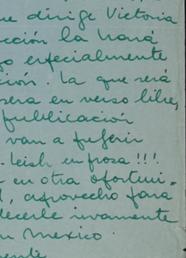 e dirige Victoria
cción la hará
o especialmente
ción. La que será
sera en verso libre,
publicación
van a preferir
leish en prosa!!!
en otra oportuni-
, aprovecho para
decerle nuevamente
en Mexico.
mente